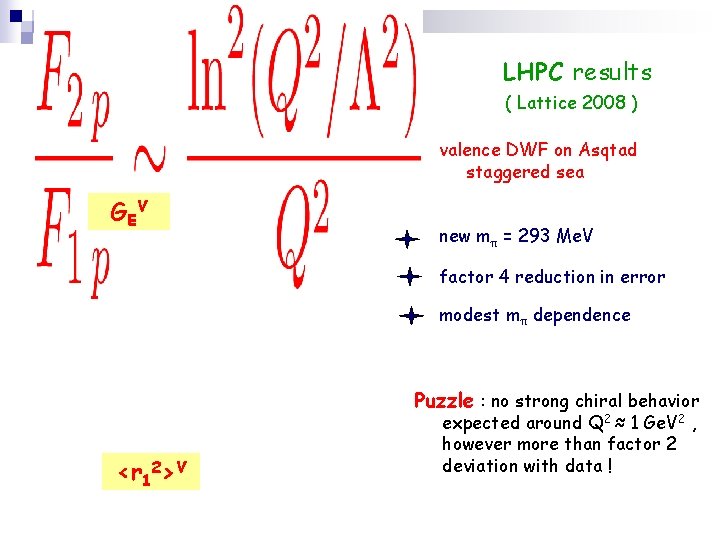 F_{2p} / F_{1p} ~ ln²(Q²/Λ²) / Q²
LHPC results
( Lattice 2008 )
valence DWF on Asqtad
staggered sea
G_E^V
new m_π = 293 Me.V
factor 4 reduction in error
modest m_π dependence
Puzzle : no strong chiral behavior
expected around Q² ≈ 1 Ge.V² ,
however more than factor 2
deviation with data !
<r₁²>^V